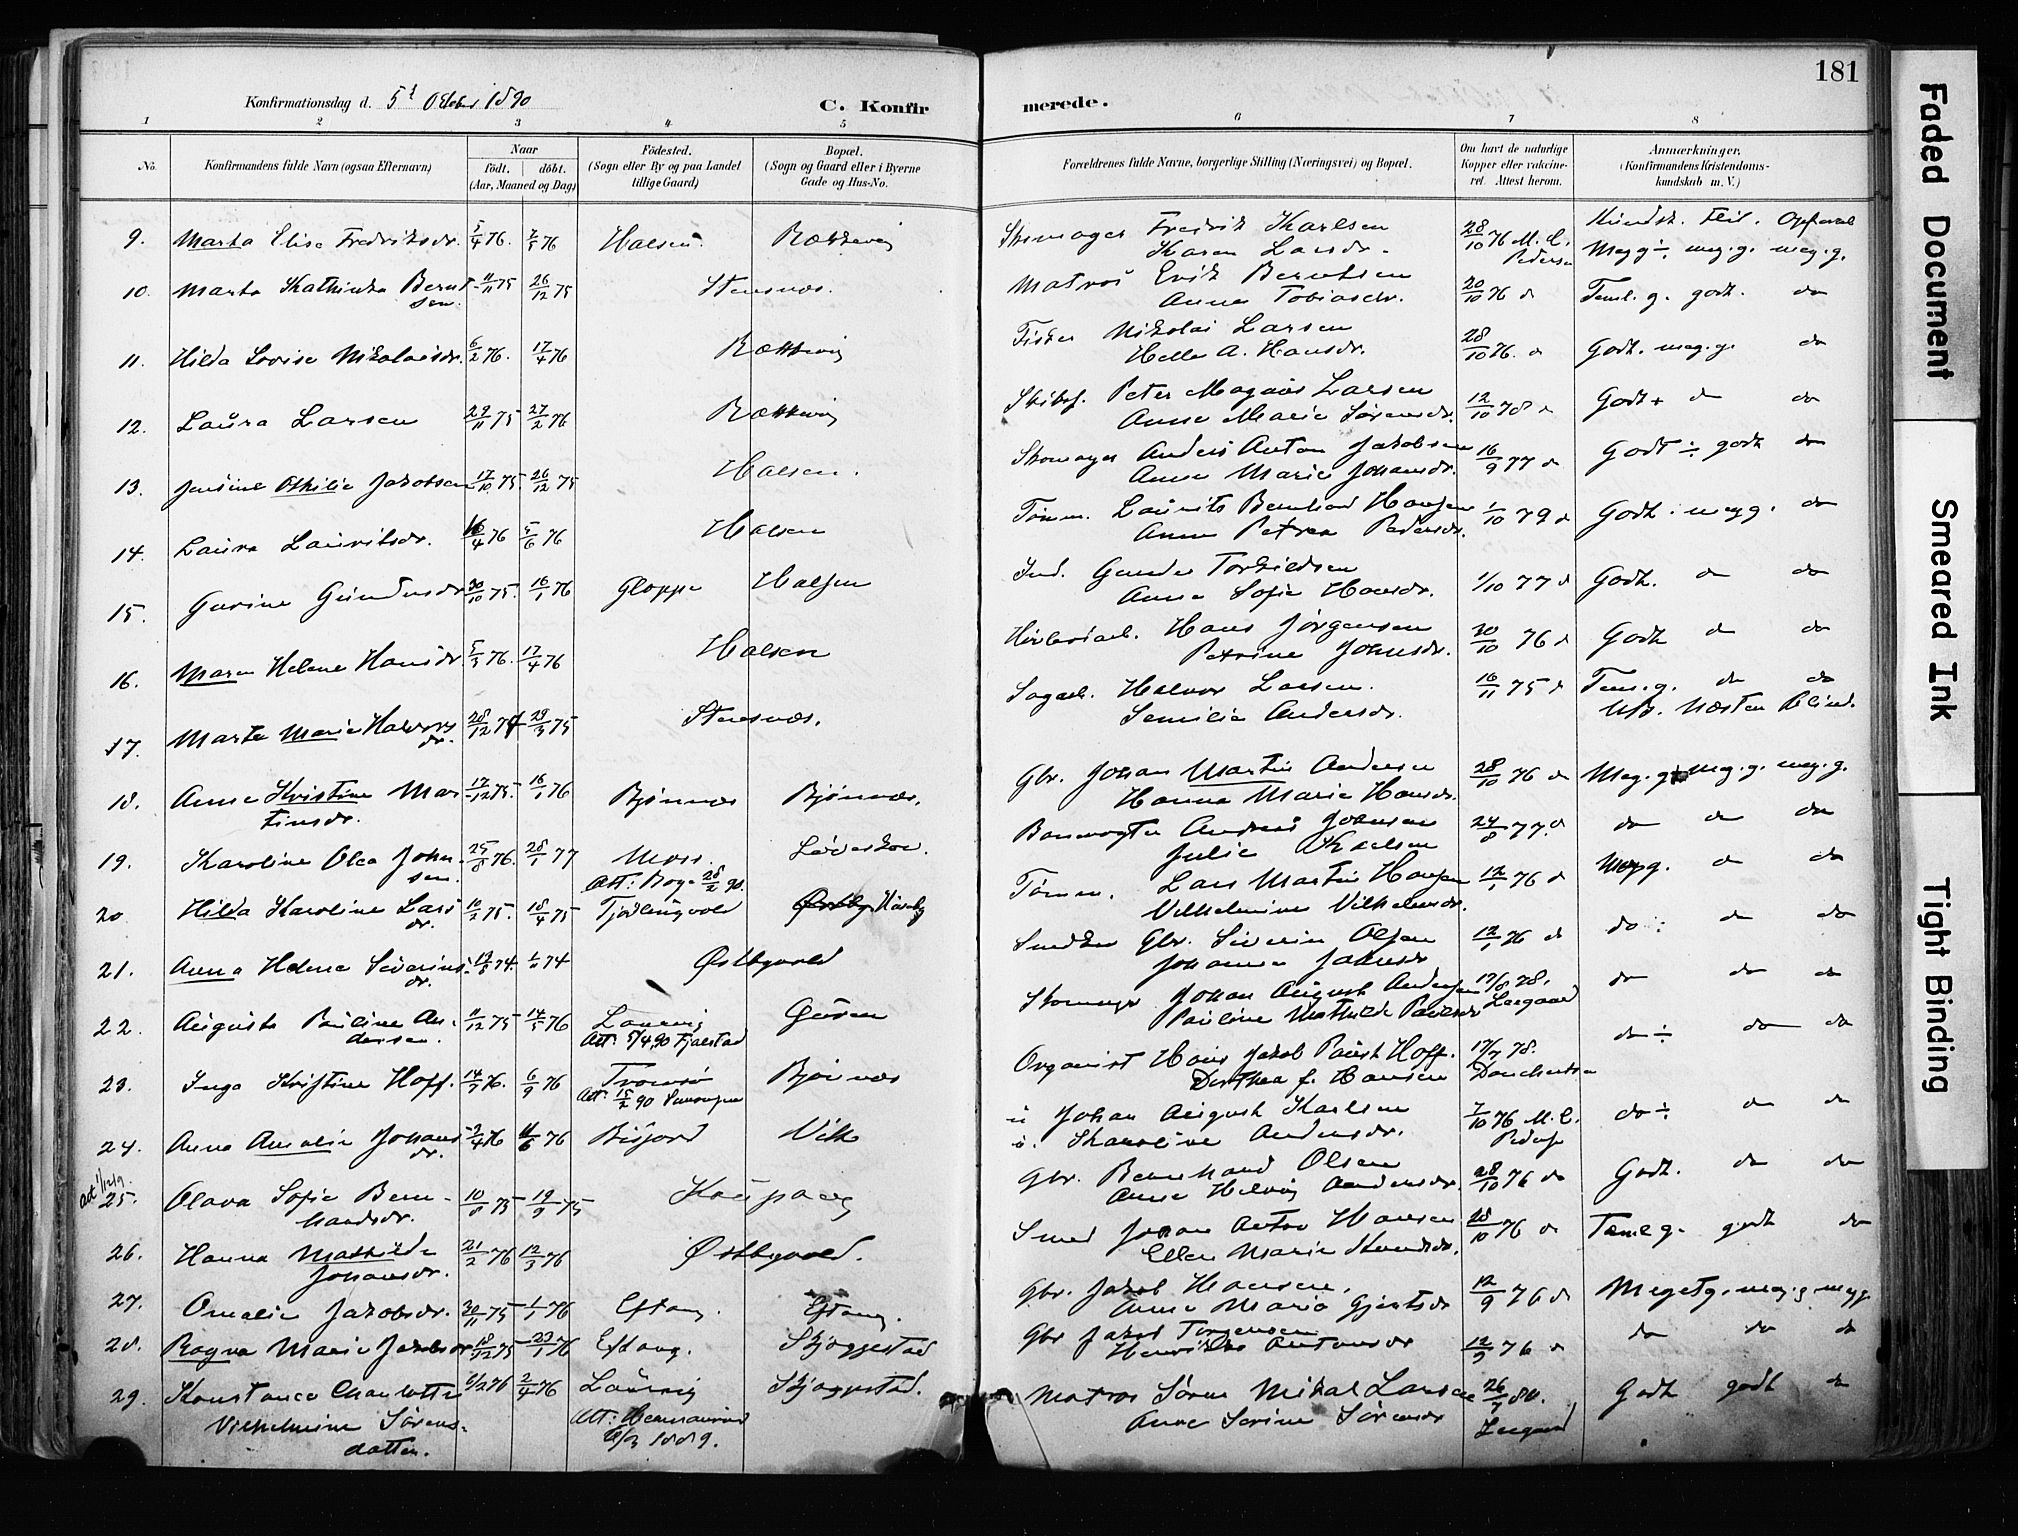 181
Konfirmationsdag d. 5t October 1890
C. Konfirmerede.
1 2 3 4 5 6 7 8
No.
Konfirmandens fulde Navn (ogsaa Efternavn)
Naar
födt. döbt.
(Aar, Maaned og Dag)
Födested.
(Sogn eller By og paa Landet
tillige Gaard)
Bopæl.
(Sogn og Gaard eller i Byerne
Gade og Hus-No.
Forældrenes fulde Navne, borgerlige Stilling (Næringsvei) og Bopæl.
Om havt de naturlige
Kopper eller vakcine-
ret. Attest herom.
Anmærkninger.
(Konfirmandens Kristendoms-
kundskab m. V.)
9. Marta Elise Fredriksdr. 5/4 76. 7/5 76 Halsen. Rækkevig Skomager Fredrik Karlsen 28/10 76 M. C. Kundsk. Flid. Opførsel
Karen Larsdr. Pedersen Meg g ÷ meg. g. meg. g.
10. Marta Kathinka Bernt- 11/11 75 26/12 75 Stensnæs. Matros Erik Berntsen 20/10 76 do Teml. g. godt. do
sen. Anne Tobiasdr.
11. Hilda Lovise Nikolaisdr. 6/2 76. 17/4 76 Rækkevig Fisker Nikolai Larsen 28/10 76. do Godt. meg. g. do
Helle A. Hansdr.
12. Laura Larsen 29/11 75 27/2 76 Rækkevig Peter Magnus Larsen 12/10 78 do Godt + do do
Anne Marie Sørensdr.
13. Jensine Othilie Jakobsen 17/10 75. 26/12 75 Halsen. Skomager Anders Anton Jakobsen 16/9 77 do Godt ÷ godt do
Anne Marie Johansdr.
14. Laura Lauritsdr. 16/4 76 5/6 76 Halsen Tømm. Laurits Bernhard Hansen 1/10 79 do Godt ÷ meg g. do
Anne Petrea Pedersdr.
15. Gurine Gundersdr 30/10 75. 16/1 76 Gloppe Halsen Ind. Gunder Torkildsen 1/10 77 do Godt. do do
Anne Sofie Hansdr.
16. Maren Helene Hansdr 5/3 76. 17/4 76 Halsen Hans Jørgensen 20/10 76 do Godt do do
Petrine Johnsdr.
17. Marta Marie Halvors 28/12 74 29/3 75 Stensnæs. Sagarb. Halvor Larsen. 16/11 75 do Tem. g. do do
dr. Semilie Andersdr. NB. Næsten Blind.
18. Anne Kristine Mar 17/12 75. 16/1 76 Bjønnæs Bjønnæs. Gbr. Johan Martin Andersen 28/10 76 do Meg. g ÷ meg. g. meg. g.
tinsdr. Hanna Marie Hansdr.
19. Karoline Olea John- 25/8 76. 28/1 77 Moss. Løveskov. Banevogter Andreas Johnsen 24/8 77. do do do do
sen. Att: Borge 28/2 90. Julie Karlsen
20 Hilda Karoline Lars 10/2 75. 18/4 75 Tjødlingvold Østby Tømm. Lars Martin Hansen 12/1 76 do Meg g. do do
dr. Vilhelmine Vilhelmsdr.
21. Anna Helene Severins 17/8 74. 1/11 74 Østbyvold Snedker Gbr. Siverin Olsen 12/1 76 do do ÷ do do
dr. Johanne Jakobsdr
22. Augusta Pauline An- 11/12 75 14/5 76 Laurvig Gusen Skomager Johan August Andersen 17/8 78. do do do
dersen. Att: 8/4 90 Fjælstad Pauline Mathilde Paulsdr Lasgaard
23. Inga Kristine Hoff. 14/7 76. 6/9 76 Tromsø Bjønnæs Organist Hans Jakob Paust Hoff. 17/7 78. do ÷ do do
Att: 15/2 90 Dorthea f. Hansen
24. Anna Amalie Johans 2/4 76 11/6 76 Bisjord Vik u Johan August Karlsen 7/10 76 M. C. do ÷ do do
dr. u. Karoline Andersdr. Peders
25. Olava Sofie Bern- 10/8 75 19/9 75 Kaupang Gbr. Bernhard Olsen 28/10 76 do Godt. do do
hardsdr. Anne Helvig Andersdr.
26. Hanna Mathilde 21/2 76 12/3 76 Østbyvold. Smed Johan Anton Hansen 28/10 76 do Teml g. godt do
Johansdr. Ellen Marie Knudsdr.
27. Omalie Jakobsdr. 30/11 75 1/1 76 Eftang. Eftang. Gbr. Jakob Hansen. 12/9 76 do Meget g. meg. g meg g.
Anne Maria Gjertsdr
28. Ragna Marie Jakobsdr 18/12 75 23/1 76 Eftang. Skjeggestad Gbr Jakob Torgersen 12/9 76 do do do do
Henrikke Antonsdr
29. Konstance Charlotte 6/2 76 2/4 76 Laurvig Skjeggestad. Matros Søren Mikal Larsen 26/7 80. Godt godt do
Vilhelmine Sørens- Att: Anne Serine Sørensdr
datter. 1889.
Faded Document
Smeared Ink
Tight Binding